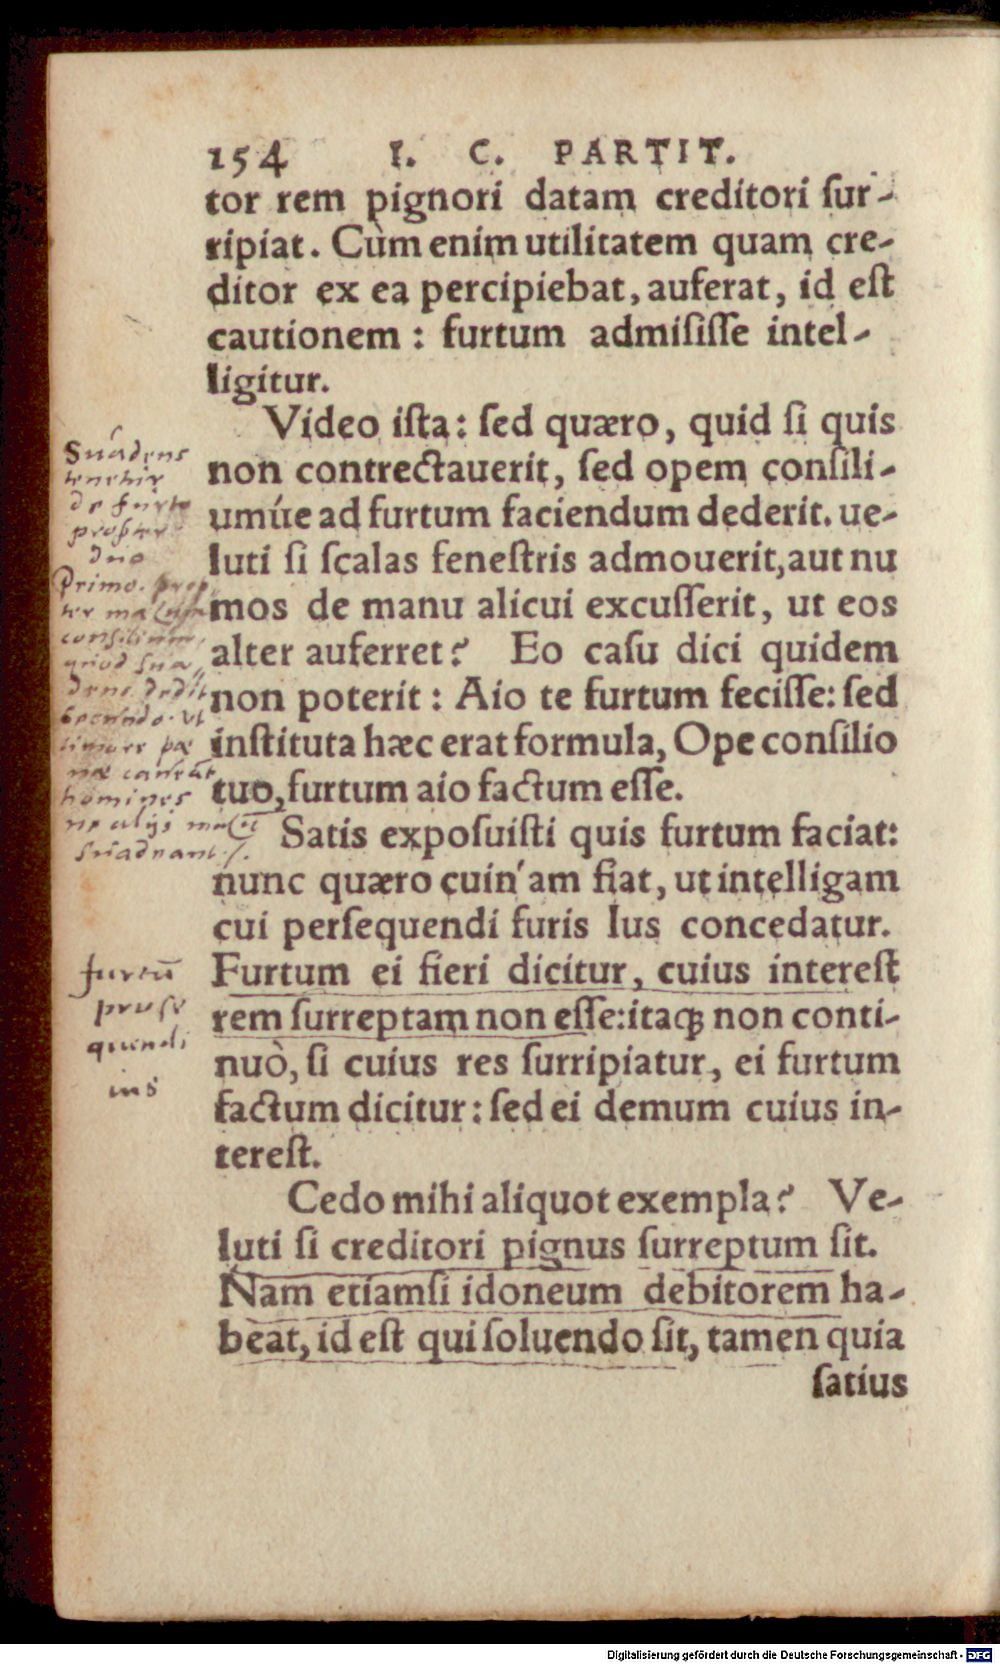 154 I. C. PARTIT.
tor rem pignori datam creditori ſur-
ripiat. Cùm enim utilitatem quam cre-
ditor ex ea percipiebat, auferat, id eſt
cautionem : furtum admiſiſſe intel-
ligitur.
Video iſta: ſed quæro, quid ſi quis
non contrectauerit, ſed opem conſili-
umúe ad furtum faciendum dederit. ue-
luti ſi ſcalas feneſtris admouerit, aut nu
mos de manu alicui excuſſerit, ut eos
alter auferret? Eo caſu dici quidem
non poterit : Aio te furtum feciſſe: ſed
inſtituta hæc erat formula, Ope conſilio
tuo, furtum aio factum eſſe.
Satis expoſuiſti quis furtum faciat:
nunc quæro cuin'am fiat, ut intelligam
cui perſequendi furis Ius concedatur.
Furtum ei fieri dicitur, cuius intereſt
rem ſurreptam non eſſe: itaq; non conti-
nuò, ſi cuius res ſurripiatur, ei furtum
factum dicitur: ſed ei demum cuius in-
tereſt.
Cedo mihi aliquot exempla? Ve-
luti ſi creditori pignus ſurreptum ſit.
Nam etiamſi idoneum debitorem ha-
beat, id eſt qui ſoluendo ſit, tamen quia
ſatius
Suadens
tenetur
de furto
propter
duo
Primo. prop
ter malum
consilium,
quod sua
dens dedit
Secundo. ut
timore pœ
næ
homines
ne alijs
suadeant
furtũ
prose
quendi
ius
Digitalisierung gefördert durch die Deutsche Forschungsgemeinschaft - DFG